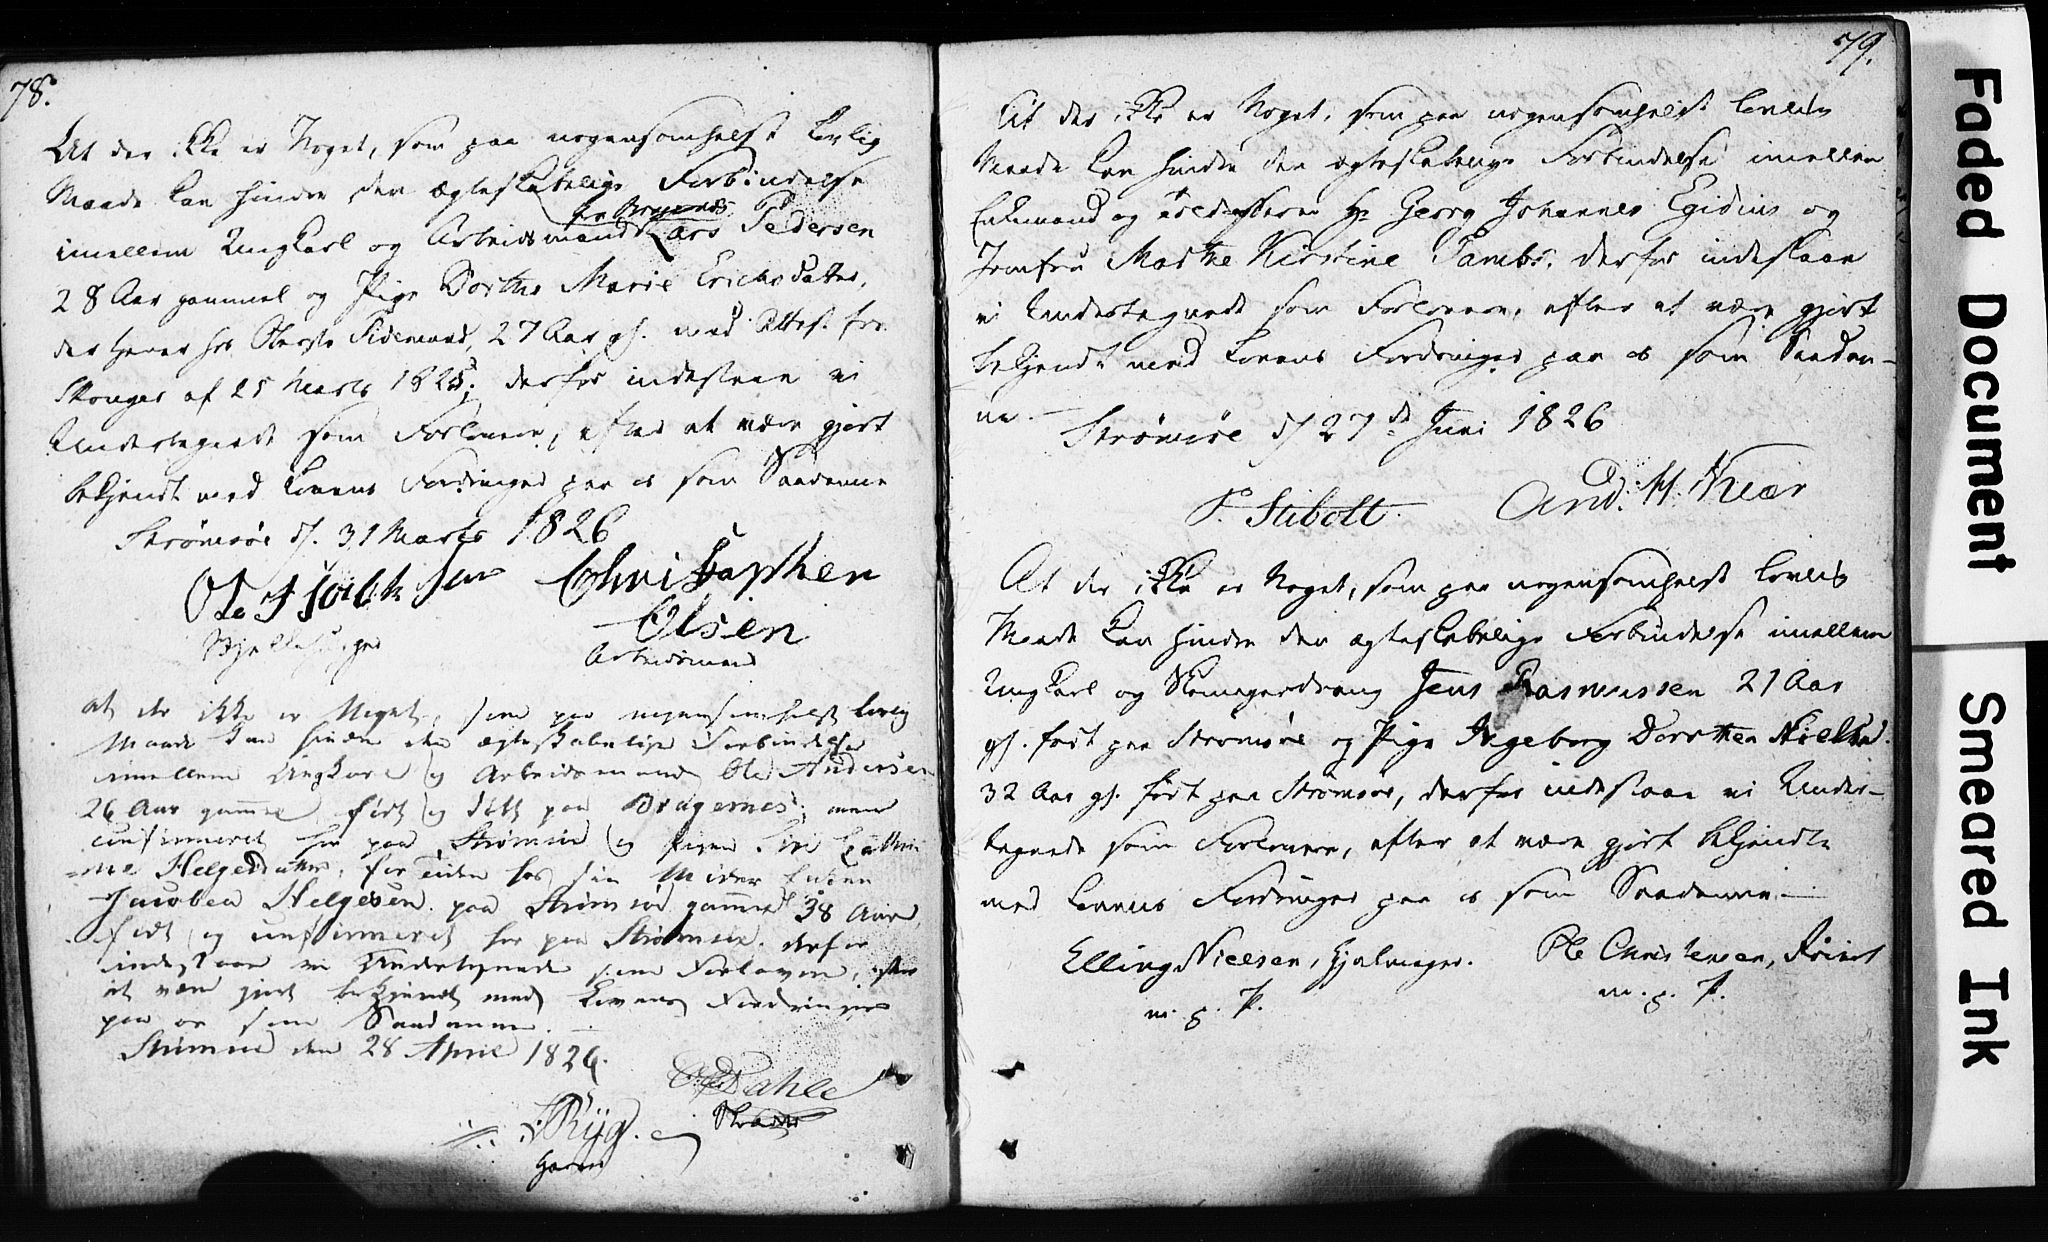 78.
At der ikke er Noget, som paa nogensomhelst lovlig
Maade kan hindre den ægteskabelige Forbindelse
fra Bragernæs
imellem Ungkarl og Arbeidsmand Lars Pedersen
28 Aar gammel og Pige Dorthe Marie Erichsdatter,
der tjener hos Tidemand, 27 Aar gl. med Attest fra
Skouger af 25 Marts 1825; derfor indestaae vi
Undertegnede som Forlovere, efter at være gjort
bekjendt med Lovens Fordringer paa os som Saadanne
Strømsøe d. 31 Marts 1826
Ole Christophen
Olsen
Arbeidsmand
at der ikke er Noget, som paa nogensomhelst lovlig
Maade kan hindre den ægteskabelige Forbindelse
imellem Ungkarl og Arbeidsmand Ole Andersen
26 Aar gammel, født og paa Bragernes, men
confirmeret her paa Strømsøe og Pigen
Helgesdatter, for Tiden hos sin Moder Enken
Jacobea Helgesen paa Strømsøe gammel 38 Aar,
født og confirmeret her paa Strømsøe. derfor
indestaae vi Undertegnede som Forlovere, efter
at være gjort bekjendt med Lovens Fordringer
paa os som Saadanne.
Strømsøe den 28 April 1826.
Dahle
Ryg.
79.
At der ikke er Noget, som paa nogensomhelst lovlig
Maade kan hindre den ægteskabelige Forbindelse imellem
Enkemand og Hr Georg Johannes Egidius og
Jomfru Marthe Kirstine Tambs. derfor indestaae
vi Undertegnede som Forlovere, efter at være gjort
bekjendt med Lovens Fordringer paa os som Saadan-
ne. —
Strømsøe d 27de Juni 1826
P. Stibolt. And. H. Kiær
At der ikke er Noget, som paa nogensomhelst lovlig
Maade kan hindre den ægteskabelige Forbindelse imellem
Ungkarl og Jens Rasmussen 21 Aar
gl. født paa Strømsøe og Pige Ingeborg Dorothea
32 Aar gl. født paa Strømsøe, derfor indestaae vi Under-
tegnede som Forlovere, efter at være gjort bekjendte
med Lovens Fordringer paa os som Saadanne. —
Elling Nielsen, Ole Christensen,
m. p. P. m. p. P.
Faded Document
Smeared Ink